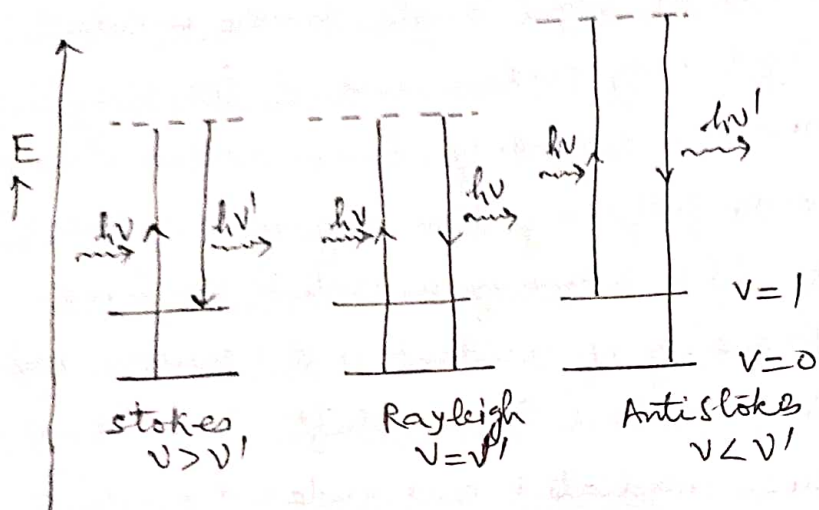 E
hν
hν'
hν
hν
hν
hν'
v=1
v=0
stokes
ν>ν'
Rayleigh
ν=ν'
Antistokes
ν<ν'